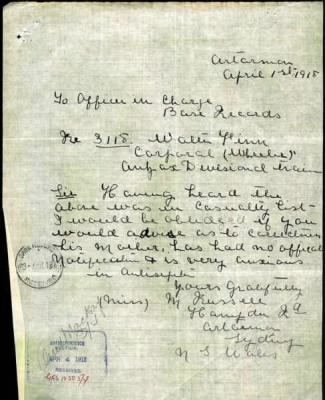 Artarmon
April 1st 1918
To Officer in Charge
Base Records
Re 3118 Walter Finn
Corporal (Wheeler)
Anzac Divisional train
Sir Having heard the
above was in Casualty list
I would be obliged if you
would advise as to condition
his Mother, has had no official
Notification & is very anxious
Yours Gratefully
(Miss) M Russell
Hampden Rd
Artarmon
Sydney
N S Wales
APR 4 1918
RECEIVED